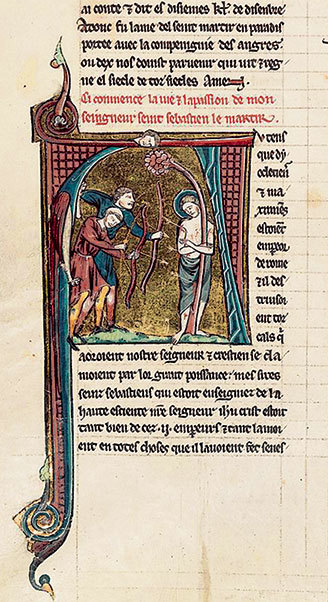 ai conte & dit el disiemes kl. de disenbre
Adonc fu lame del seint martir en paradis
portee auec la conpeignie des angres
ou dex nos doinst paruenir qui uit & reg
ne el siecle de toz siecles Amen
Ci commence la uie & la passion de mon
seingneur seint sebastien le martir.
A v tens
que dy
ocletien
& ma
ximiens
estoient
de rome
& il des
truisoi
ent toz
cals
aoroient nostre seigneur & crestien se cla
moient par lor grant poissance: mes sires
seinz sebastiens qui estoit enseignez de la
haute escience nre seigneur ihu crist estoit
tant bien de cez .ij. & tant lamoi
ent en totes choses que il lauoient fet senes